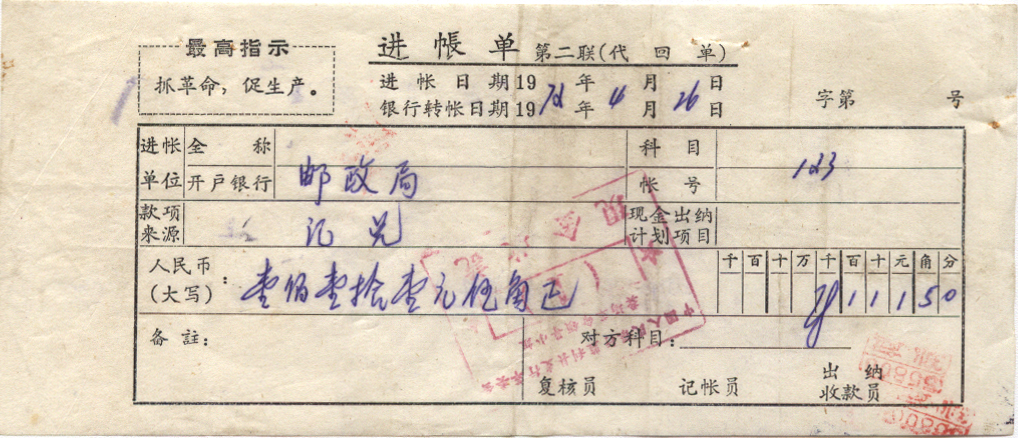 最高指示
抓革命，促生产。
进帐单 第二联(代回单)
进帐日期19 年 月 日
银行转帐日期1972年4月26日
字第 号
进帐单位 全称
开户银行 邮政局
科目
帐号 123
款项来源 汇兑
现金出纳计划项目
人民币(大写)：壹佰壹拾壹元伍角正
千百十万千百十元角分
11150
备註：
对方科目：
复核员 记帐员 出纳收款员